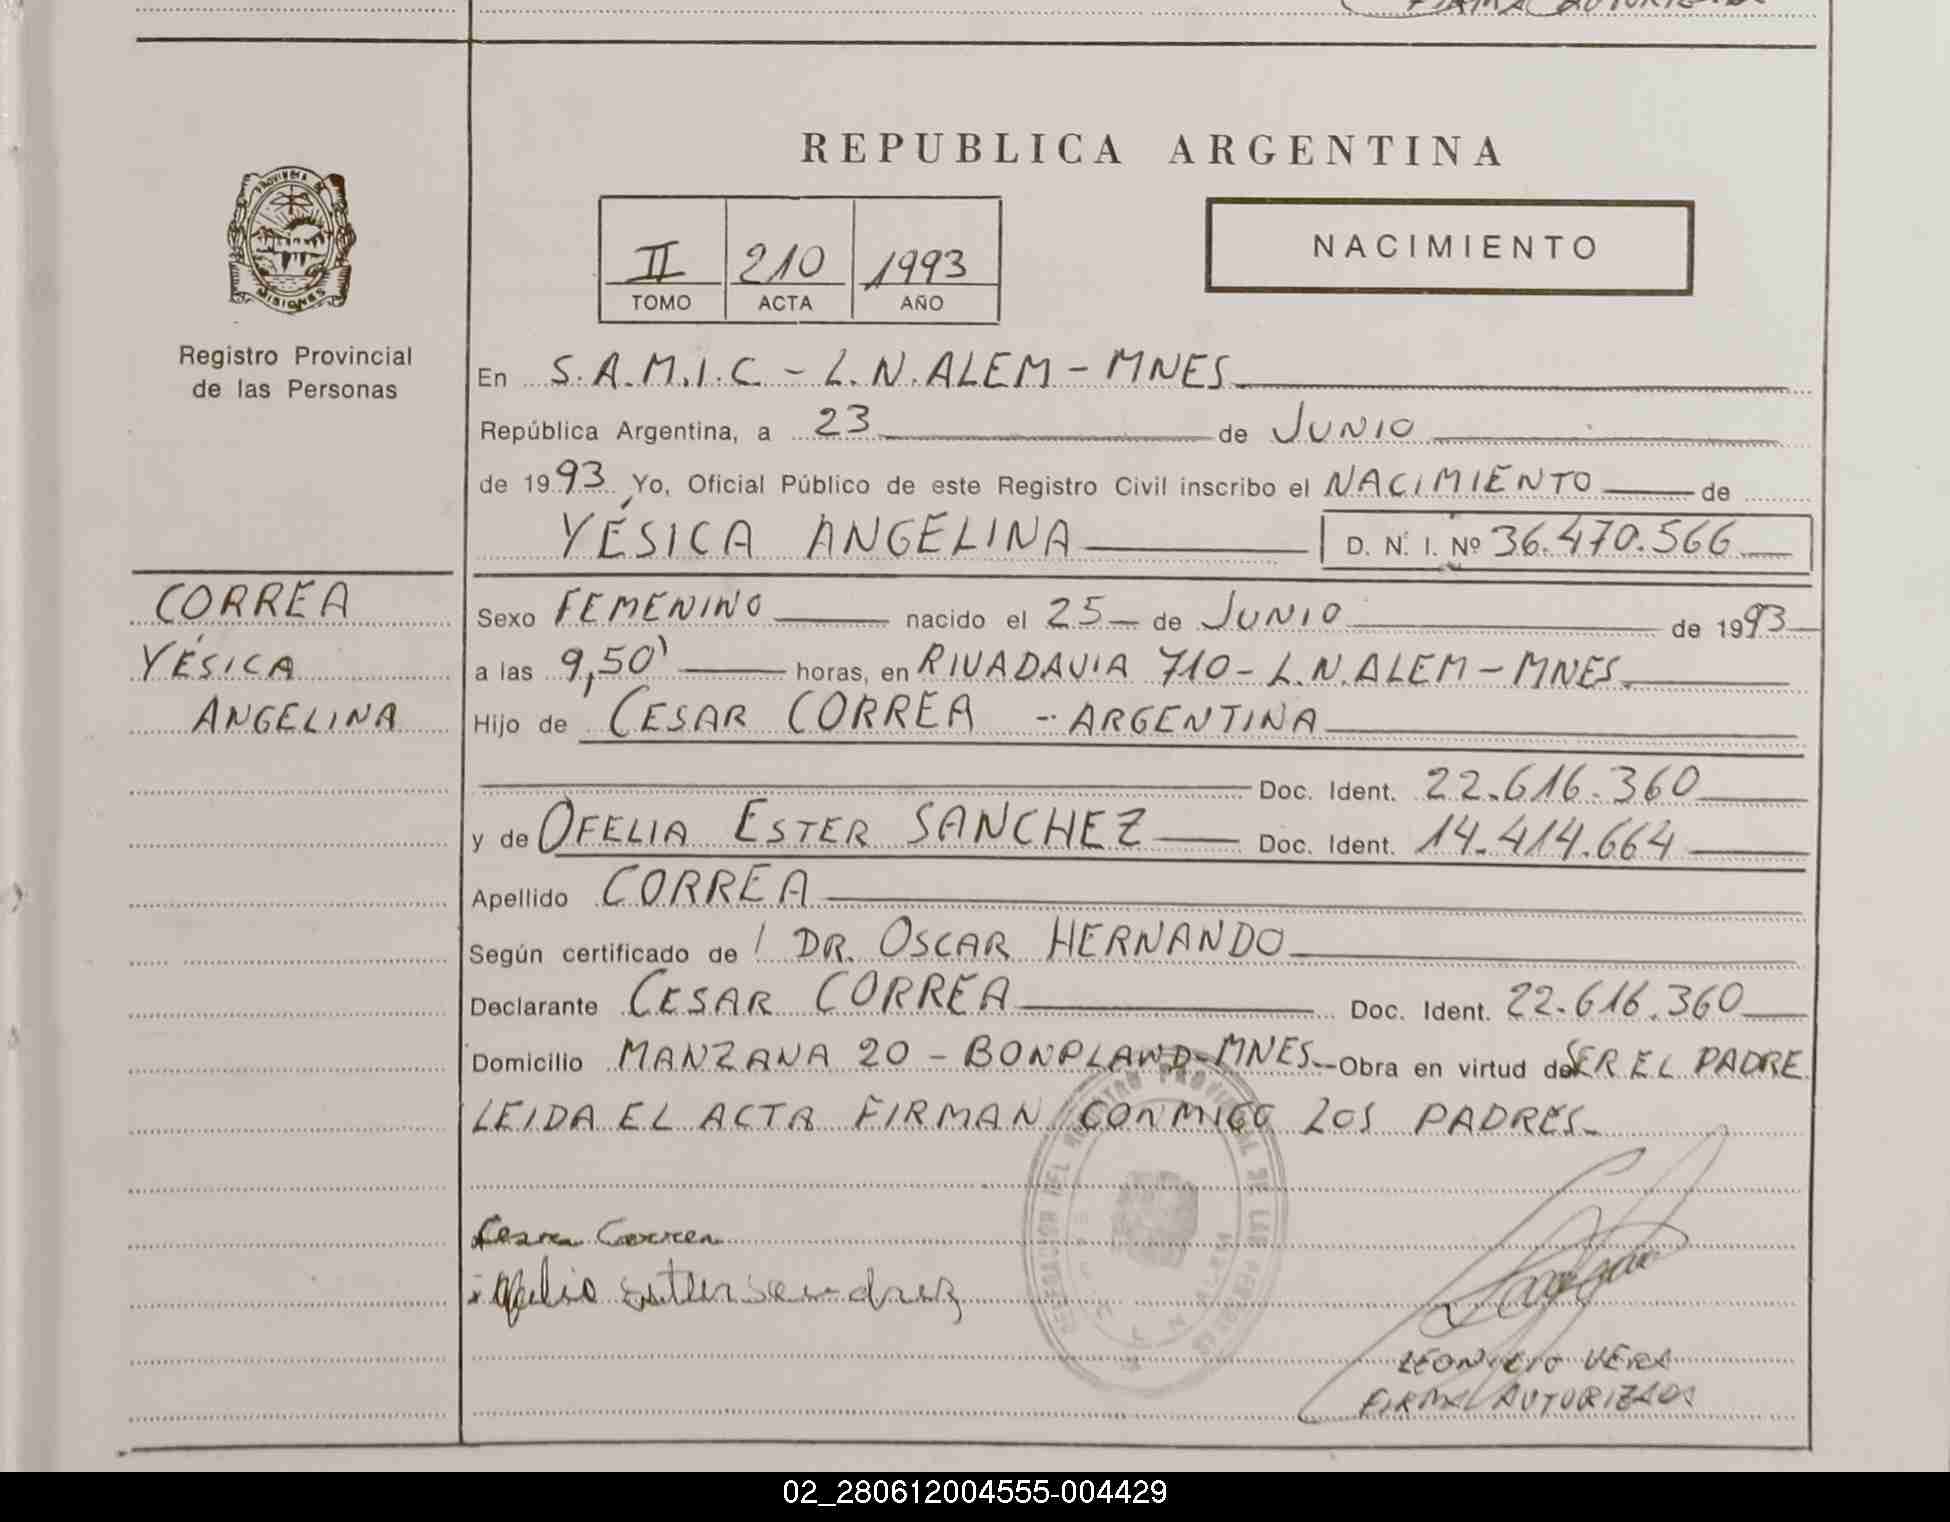 REPUBLICA ARGENTINA
PROVINCIA DE
MISIONES
Registro Provincial
de las Personas
II 210 1993
TOMO ACTA AÑO
NACIMIENTO
En S.A.M.I.C - L.N.ALEM - MNES
República Argentina, a 23 de JUNIO
de 1993 Yo, Oficial Público de este Registro Civil inscribo el NACIMIENTO de
YÉSICA ANGELINA D. N. I. Nº 36.470.566
CORREA
YÉSICA
ANGELINA
Sexo FEMENINO nacido el 25 de JUNIO de 1993
a las 9,50' horas, en RIVADAVIA 710 - L.N.ALEM - MNES.
Hijo de CESAR CORREA - ARGENTINA
Doc. Ident. 22.616.360
y de OFELIA ESTER SANCHEZ Doc. Ident. 14.414.664
Apellido CORREA
Según certificado de DR. OSCAR HERNANDO
Declarante CESAR CORREA Doc. Ident. 22.616.360
Domicilio MANZANA 20 - BONPLAND - MNES. Obra en virtud de SER EL PADRE
LEIDA EL ACTA FIRMAN CONMIGO LOS PADRES.
Cesar Correa
Ofelia ester sanchez
DELEGACION DEL REGISTRO PROVINCIAL DE LAS PERSONAS
VERA
FIRMA AUTORIZADA
02_280612004555-004429